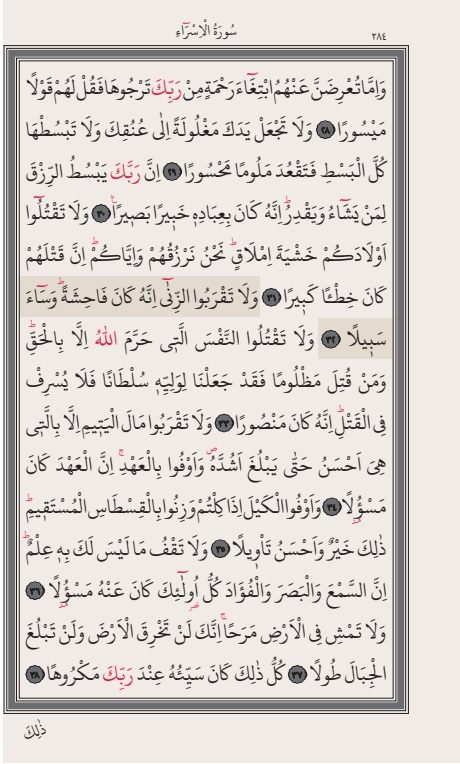 سُورَةُ الْاِسْرَٓاءِ ٢٨٤
وَاِمَّا تُعْرِضَنَّ عَنْهُمُ ابْتِغَٓاءَ رَحْمَةٍ مِنْ رَبِّكَ تَرْجُوهَا فَقُلْ لَهُمْ قَوْلًا
مَيْسُورًا ٢٨ وَلَا تَجْعَلْ يَدَكَ مَغْلُولَةً اِلٰى عُنُقِكَ وَلَا تَبْسُطْهَا
كُلَّ الْبَسْطِ فَتَقْعُدَ مَلُومًا مَحْسُورًا ٢٩ اِنَّ رَبَّكَ يَبْسُطُ الرِّزْقَ
لِمَنْ يَشَٓاءُ وَيَقْدِرُۜ اِنَّهُ كَانَ بِعِبَادِهٖ خَبٖيرًا بَصٖيرًاۚ ٣٠ وَلَا تَقْتُلُٓوا
اَوْلَادَكُمْ خَشْيَةَ اِمْلَاقٍۜ نَحْنُ نَرْزُقُهُمْ وَاِيَّاكُمْۜ اِنَّ قَتْلَهُمْ
كَانَ خِطْـًٔا كَبٖيرًا ٣١ وَلَا تَقْرَبُوا الزِّنٰٓى اِنَّهُ كَانَ فَاحِشَةًۜ وَسَٓاءَ
سَبٖيلًا ٣٢ وَلَا تَقْتُلُوا النَّفْسَ الَّتٖى حَرَّمَ اللّٰهُ اِلَّا بِالْحَقِّۜ
وَمَنْ قُتِلَ مَظْلُومًا فَقَدْ جَعَلْنَا لِوَلِيِّهٖ سُلْطَانًا فَلَا يُسْرِفْ
فِى الْقَتْلِۜ اِنَّهُ كَانَ مَنْصُورًا ٣٣ وَلَا تَقْرَبُوا مَالَ الْيَتٖيمِ اِلَّا بِالَّتٖى
هِىَ اَحْسَنُ حَتّٰى يَبْلُغَ اَشُدَّهُۖ وَاَوْفُوا بِالْعَهْدِۚ اِنَّ الْعَهْدَ كَانَ
مَسْؤُ۫لًا ٣٤ وَاَوْفُوا الْكَيْلَ اِذَا كِلْتُمْ وَزِنُوا بِالْقِسْطَاسِ الْمُسْتَقٖيمِۜ
ذٰلِكَ خَيْرٌ وَاَحْسَنُ تَأْوٖيلًا ٣٥ وَلَا تَقْفُ مَا لَيْسَ لَكَ بِهٖ عِلْمٌۜ
اِنَّ السَّمْعَ وَالْبَصَرَ وَالْفُؤٰادَ كُلُّ اُو۬لٰٓئِكَ كَانَ عَنْهُ مَسْؤُ۫لًا ٣٦
وَلَا تَمْشِ فِى الْاَرْضِ مَرَحًاۚ اِنَّكَ لَنْ تَخْرِقَ الْاَرْضَ وَلَنْ تَبْلُغَ
الْجِبَالَ طُولًا ٣٧ كُلُّ ذٰلِكَ كَانَ سَيِّئُهُ عِنْدَ رَبِّكَ مَكْرُوهًا ٣٨
ذٰلِكَ